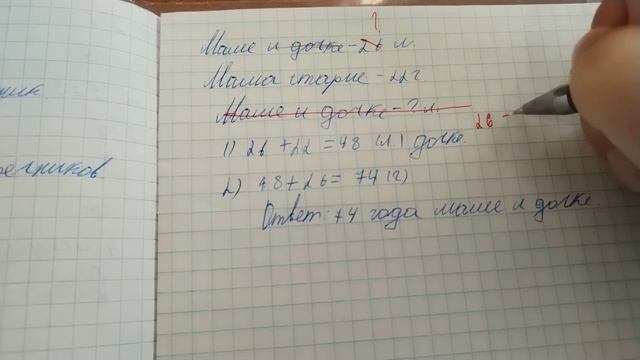 ?
Маме и дочке - 26 л.
Мама старше - 22 г
Маме и дочке - ? л.
1) 26 + 22 = 48 (л.) дочке.
26 -
2) 48 + 26 = 74 (г)
Ответ: 74 года маме и дочке.
ник.